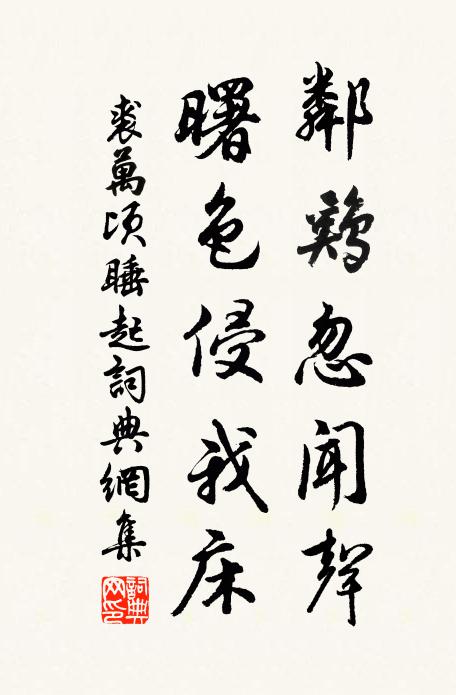 鄰鷄忽聞聲
曙色侵我床
裘萬頃睡起詞典網集
詞典網印